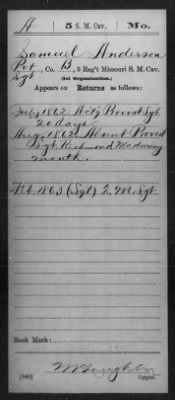 A 5 S. M. Cav. Mo.
Samuel Anderson
Pvt, Co. B, 5 Reg't Missouri S. M. Cav.
Sgt (1st Organization.)
Appears on Returns as follows:
July 1862. Act'g Provost Sgt
20 days.
Aug 1862. Absent Provost
Sgt Richmond Mo during
month.
Feb 1863 (Sgt) 2. M. Sgt
Book Mark:
(546) Copyist.